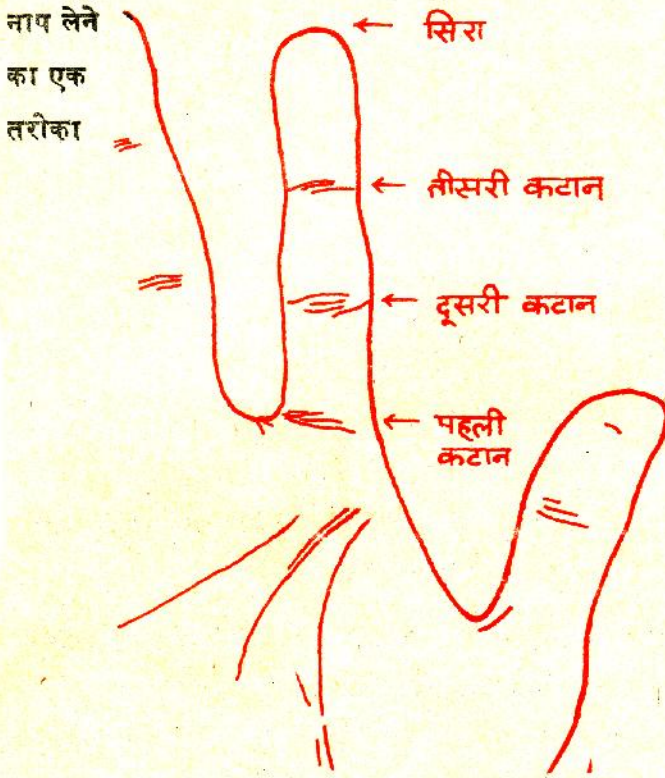 नाप लेने
का एक
तरीका
सिरा
तीसरी कटान
दूसरी कटान
पहली
कटान